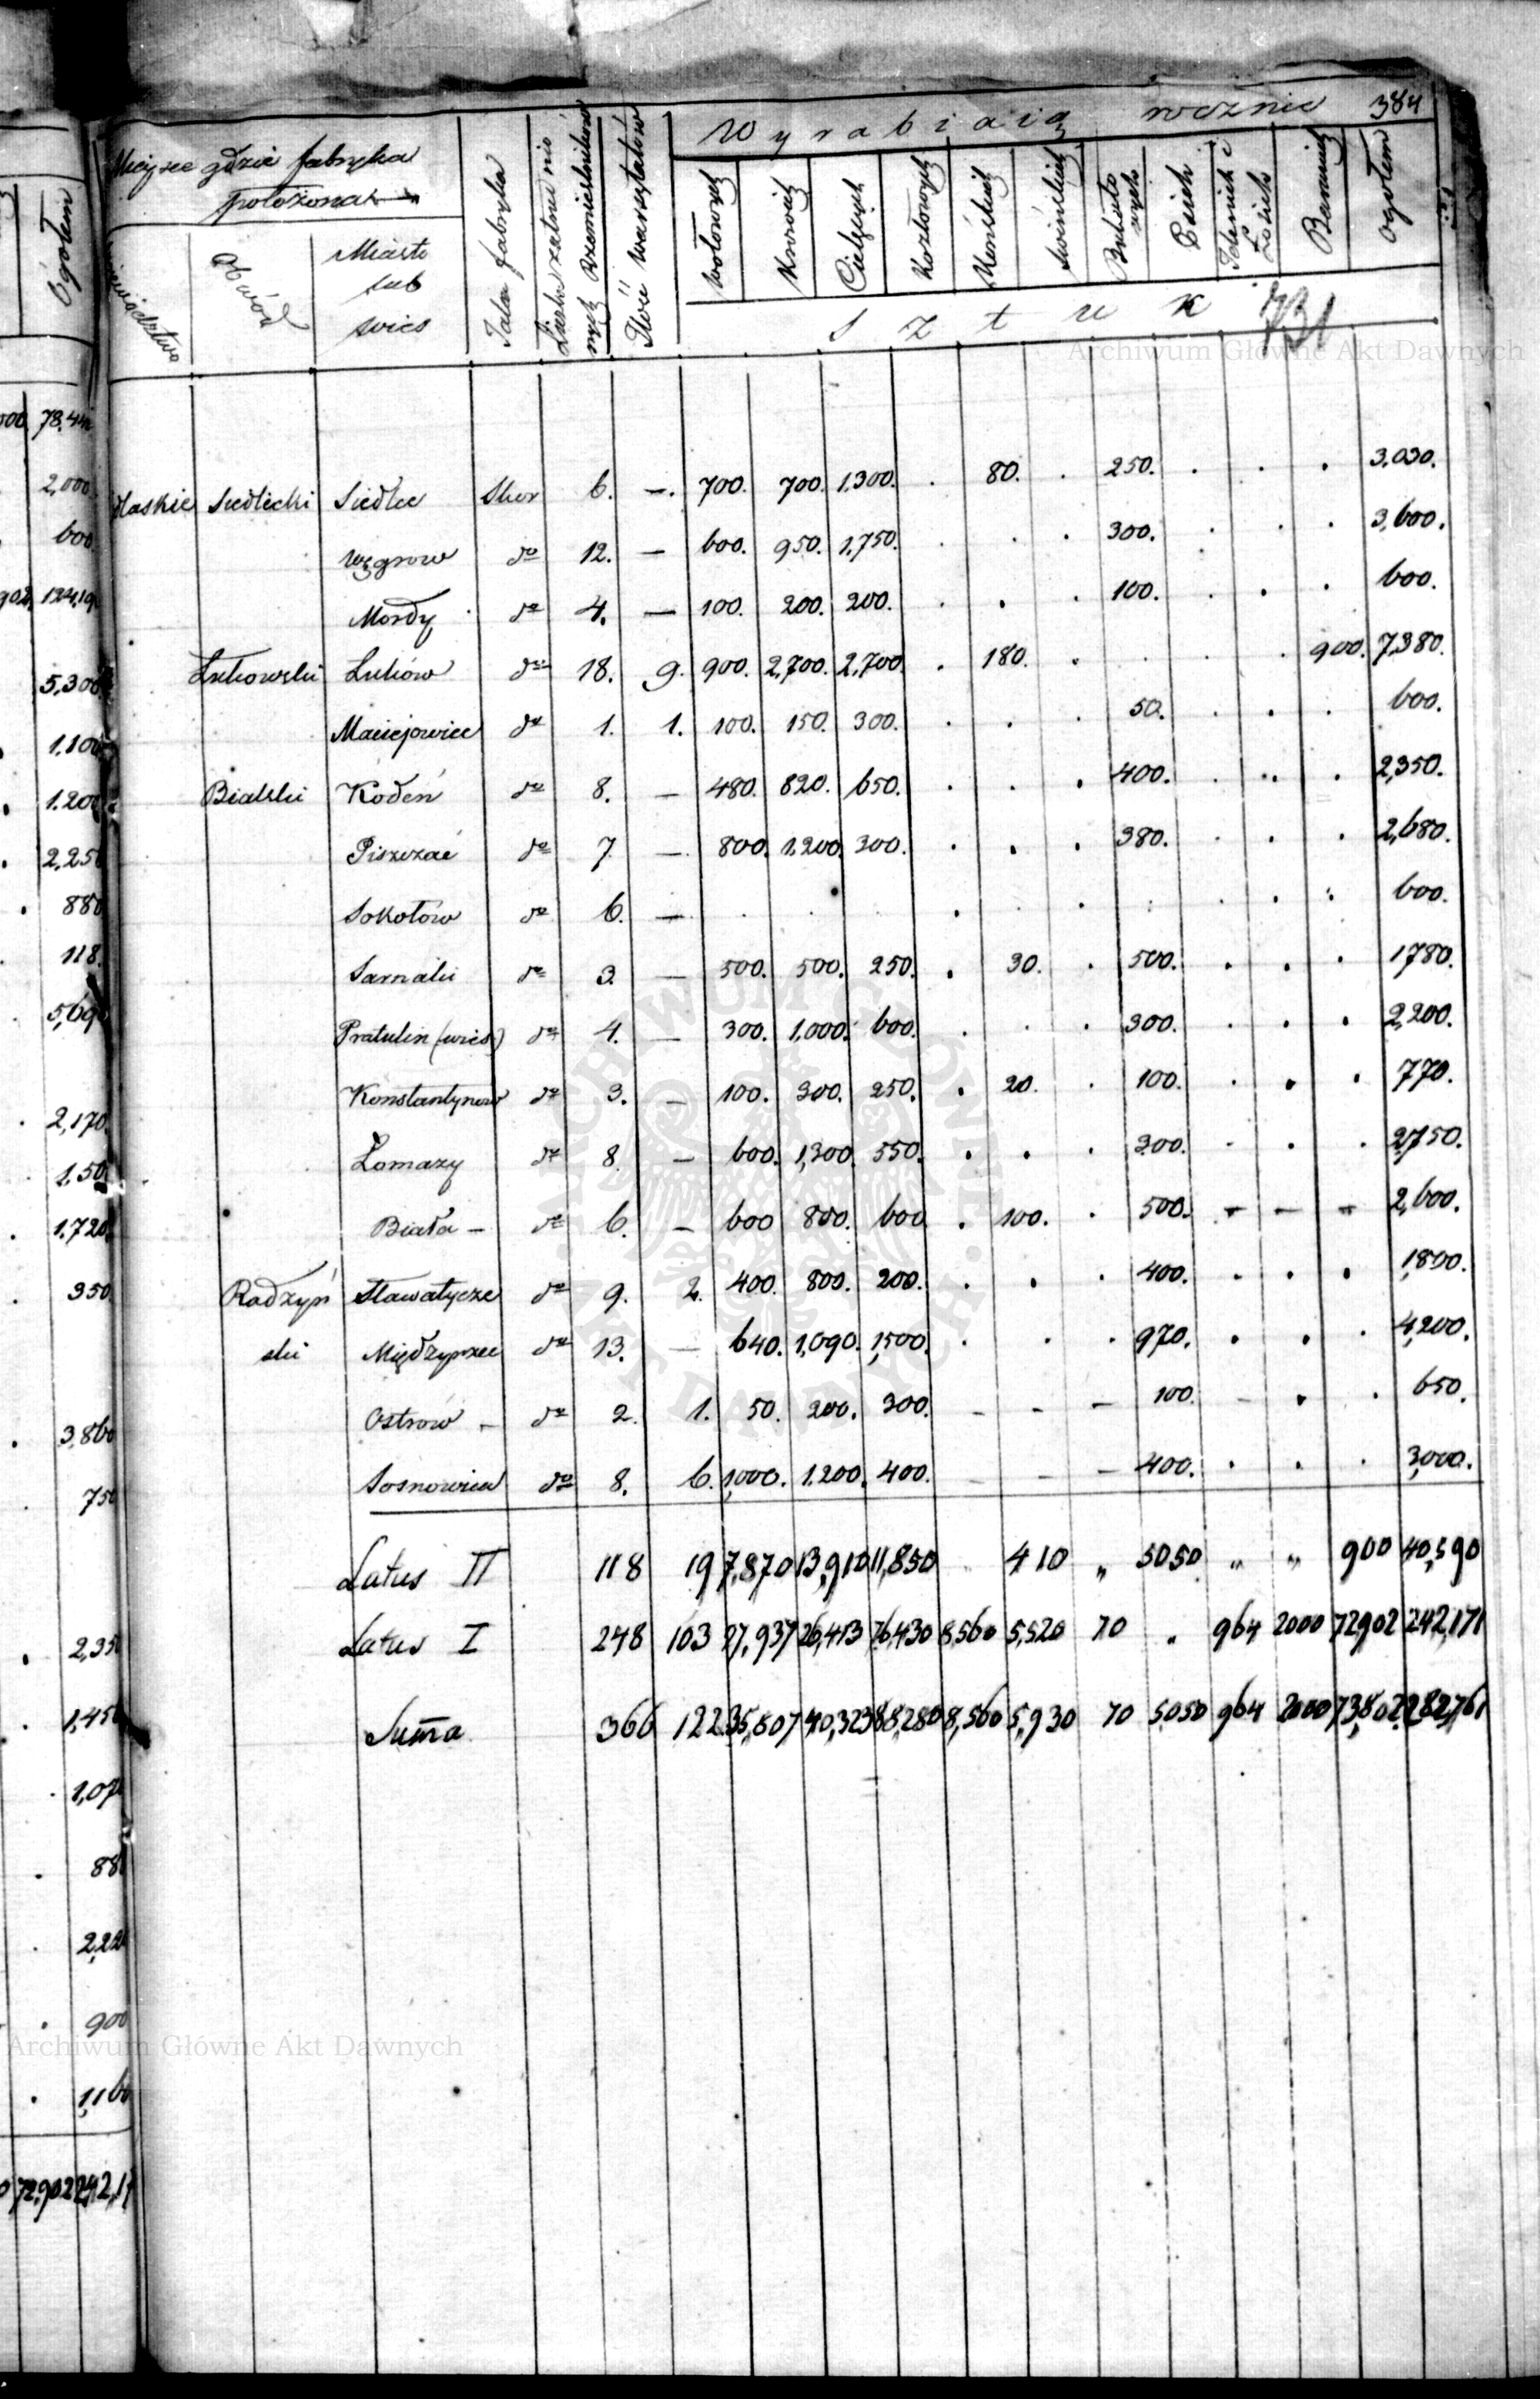 384
Wyrabiaią rocznie
Miejsce gdzie fabryka położona
Jaka fabryka
Liczba zatrudnionych Rzemieślników
Ilość warsztatów
Wołowych
Krowich
Cielęcych
Kozłowych
Końskich
Swińskich
Psich
Jelenich i Łosich
Baranich
Ogółem
Obwód
Miasto lub wieś
Sztuk
731
Archiwum Główne Akt Dawnych
dlaskie Siedlecki Siedlce Skor 6. —. 700. 700. 1,300. . 80. . 250. . . . 3,030.
Węgrow do 12. — 600. 950. 1,750. . . . 300. . . . 3,600.
Mordy do 4. — 100. 200. 200. . . . 100. . . . 600.
Łukowski Łuków do 18. 9. 900. 2,700. 2,700. . 180. . . . . 900. 7,380.
Maciejowice do 1. 1. 100. 150. 300. . . . 50. . . . 600.
Bialski Kodeń do 8. — 480. 820. 650. . . . 400. . . . 2,350.
Piszczac do 7. — 800. 1,200. 300. . . . 380. . . . 2,680.
Sokołów do 6. — . . . . . . . . . . 600.
Sarnaki do 3. — 500. 500. 250. . 30. . 500. . . . 1780.
Pratulin (wieś) do 4. — 300. 1,000. 600. . . . 300. . . . 2,200.
Konstantynow do 3. — 100. 300. 250. . 20. . 100. . . . 770.
Łomazy do 8. — 600. 1,300. 550. . . . 300. . . . 2,750.
Biała — do 6. — 600 800. 600 . 100. . 500. — — — 2,600.
Radzyń Sławatycze do 9. 2. 400. 800. 200. . . . 400. . . . 1,800.
ski Międzyrzec do 13. — 640. 1,090. 1,500. . . . 970. . . . 4,200.
Ostrów — do 2. 1. 50. 200. 300. — — — 100. — . . 650.
Sosnowica do 8. 6. 1,000. 1.200. 400. — — — 400. . . . 3,000.
Latus II 118 19 7,870 13,910 11,850 410 „ 5050 „ „ 900 40,590
Latus I 248 103 27,937 26,413 76,430 8,560 5,520 70 „ 964 2000 72902 242,171
Suma 366 122 35,807 40,323 88,280 8,560 5,930 70 5050 964 2000 73,802 282,761
Ogółem
2,000
600
5,300
1.100
1.200
2,250
880
118.
2,170.
1.720.
350
3,860
750
900
Archiwum Główne Akt Dawnych
ARCHIWUM GŁÓWNE · AKT DAWNYCH ·